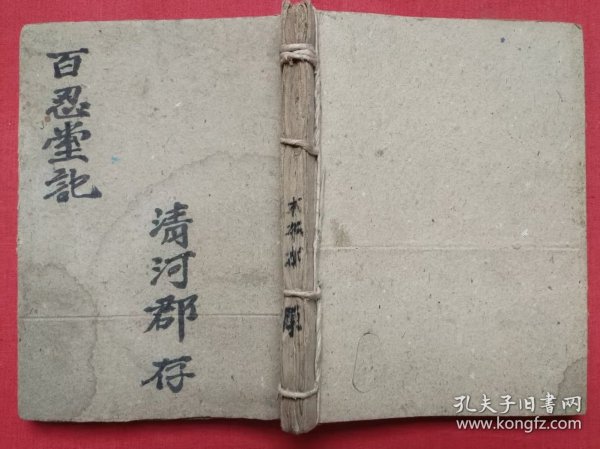 百忍堂記
清河郡存
孔夫子旧书网
www.kongfz.com